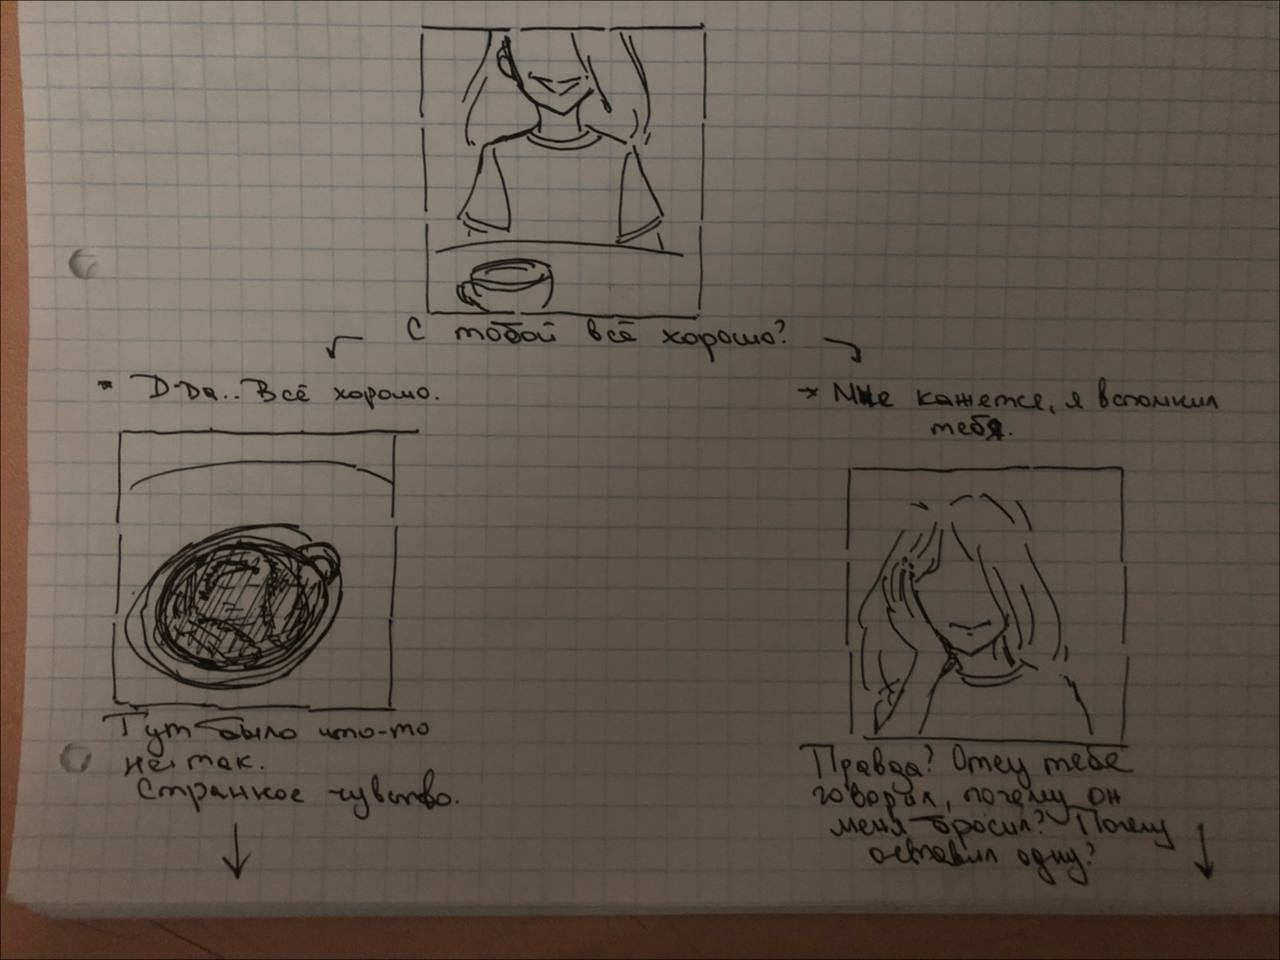 С тобой всё хорошо?
* Д-Да.. Всё хорошо.
Тут было что-то
не так.
Странное чувство.
→ Мне кажется, я вспомнил
тебя.
Правда? Отец тебе
говорил, почему он
меня бросил? Почему
оставил одну?